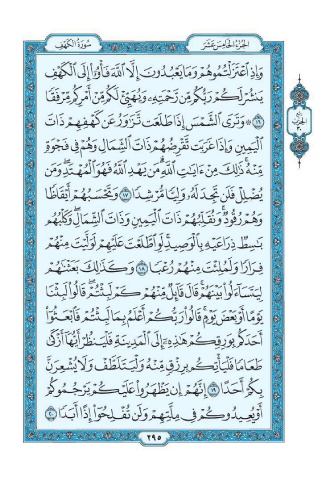 الجزء الخامس عشر
سورة الكهف
وَإِذِ ٱعْتَزَلْتُمُوهُمْ وَمَا يَعْبُدُونَ إِلَّا ٱللَّهَ فَأْوُۥٓا۟ إِلَى ٱلْكَهْفِ
يَنشُرْ لَكُمْ رَبُّكُم مِّن رَّحْمَتِهِۦ وَيُهَيِّئْ لَكُم مِّنْ أَمْرِكُم مِّرْفَقًا
١٦ ۞ وَتَرَى ٱلشَّمْسَ إِذَا طَلَعَت تَّزَٰوَرُ عَن كَهْفِهِمْ ذَاتَ
ٱلْيَمِينِ وَإِذَا غَرَبَت تَّقْرِضُهُمْ ذَاتَ ٱلشِّمَالِ وَهُمْ فِى فَجْوَةٍ
مِّنْهُ ۚ ذَٰلِكَ مِنْ ءَايَٰتِ ٱللَّهِ ۗ مَن يَهْدِ ٱللَّهُ فَهُوَ ٱلْمُهْتَدِ ۖ وَمَن
يُضْلِلْ فَلَن تَجِدَ لَهُۥ وَلِيًّا مُّرْشِدًا ١٧ وَتَحْسَبُهُمْ أَيْقَاظًا
وَهُمْ رُقُودٌ ۚ وَنُقَلِّبُهُمْ ذَاتَ ٱلْيَمِينِ وَذَاتَ ٱلشِّمَالِ ۖ وَكَلْبُهُم
بَٰسِطٌ ذِرَاعَيْهِ بِٱلْوَصِيدِ ۚ لَوِ ٱطَّلَعْتَ عَلَيْهِمْ لَوَلَّيْتَ مِنْهُمْ
فِرَارًا وَلَمُلِئْتَ مِنْهُمْ رُعْبًا ١٨ وَكَذَٰلِكَ بَعَثْنَٰهُمْ
لِيَتَسَآءَلُوا۟ بَيْنَهُمْ ۚ قَالَ قَآئِلٌ مِّنْهُمْ كَمْ لَبِثْتُمْ ۖ قَالُوا۟ لَبِثْنَا
يَوْمًا أَوْ بَعْضَ يَوْمٍ ۚ قَالُوا۟ رَبُّكُمْ أَعْلَمُ بِمَا لَبِثْتُمْ فَٱبْعَثُوٓا۟
أَحَدَكُم بِوَرِقِكُمْ هَٰذِهِۦٓ إِلَى ٱلْمَدِينَةِ فَلْيَنظُرْ أَيُّهَآ أَزْكَىٰ
طَعَامًا فَلْيَأْتِكُم بِرِزْقٍ مِّنْهُ وَلْيَتَلَطَّفْ وَلَا يُشْعِرَنَّ
بِكُمْ أَحَدًا ١٩ إِنَّهُمْ إِن يَظْهَرُوا۟ عَلَيْكُمْ يَرْجُمُوكُمْ
أَوْ يُعِيدُوكُمْ فِى مِلَّتِهِمْ وَلَن تُفْلِحُوٓا۟ إِذًا أَبَدًا ٢٠
٢٩٥